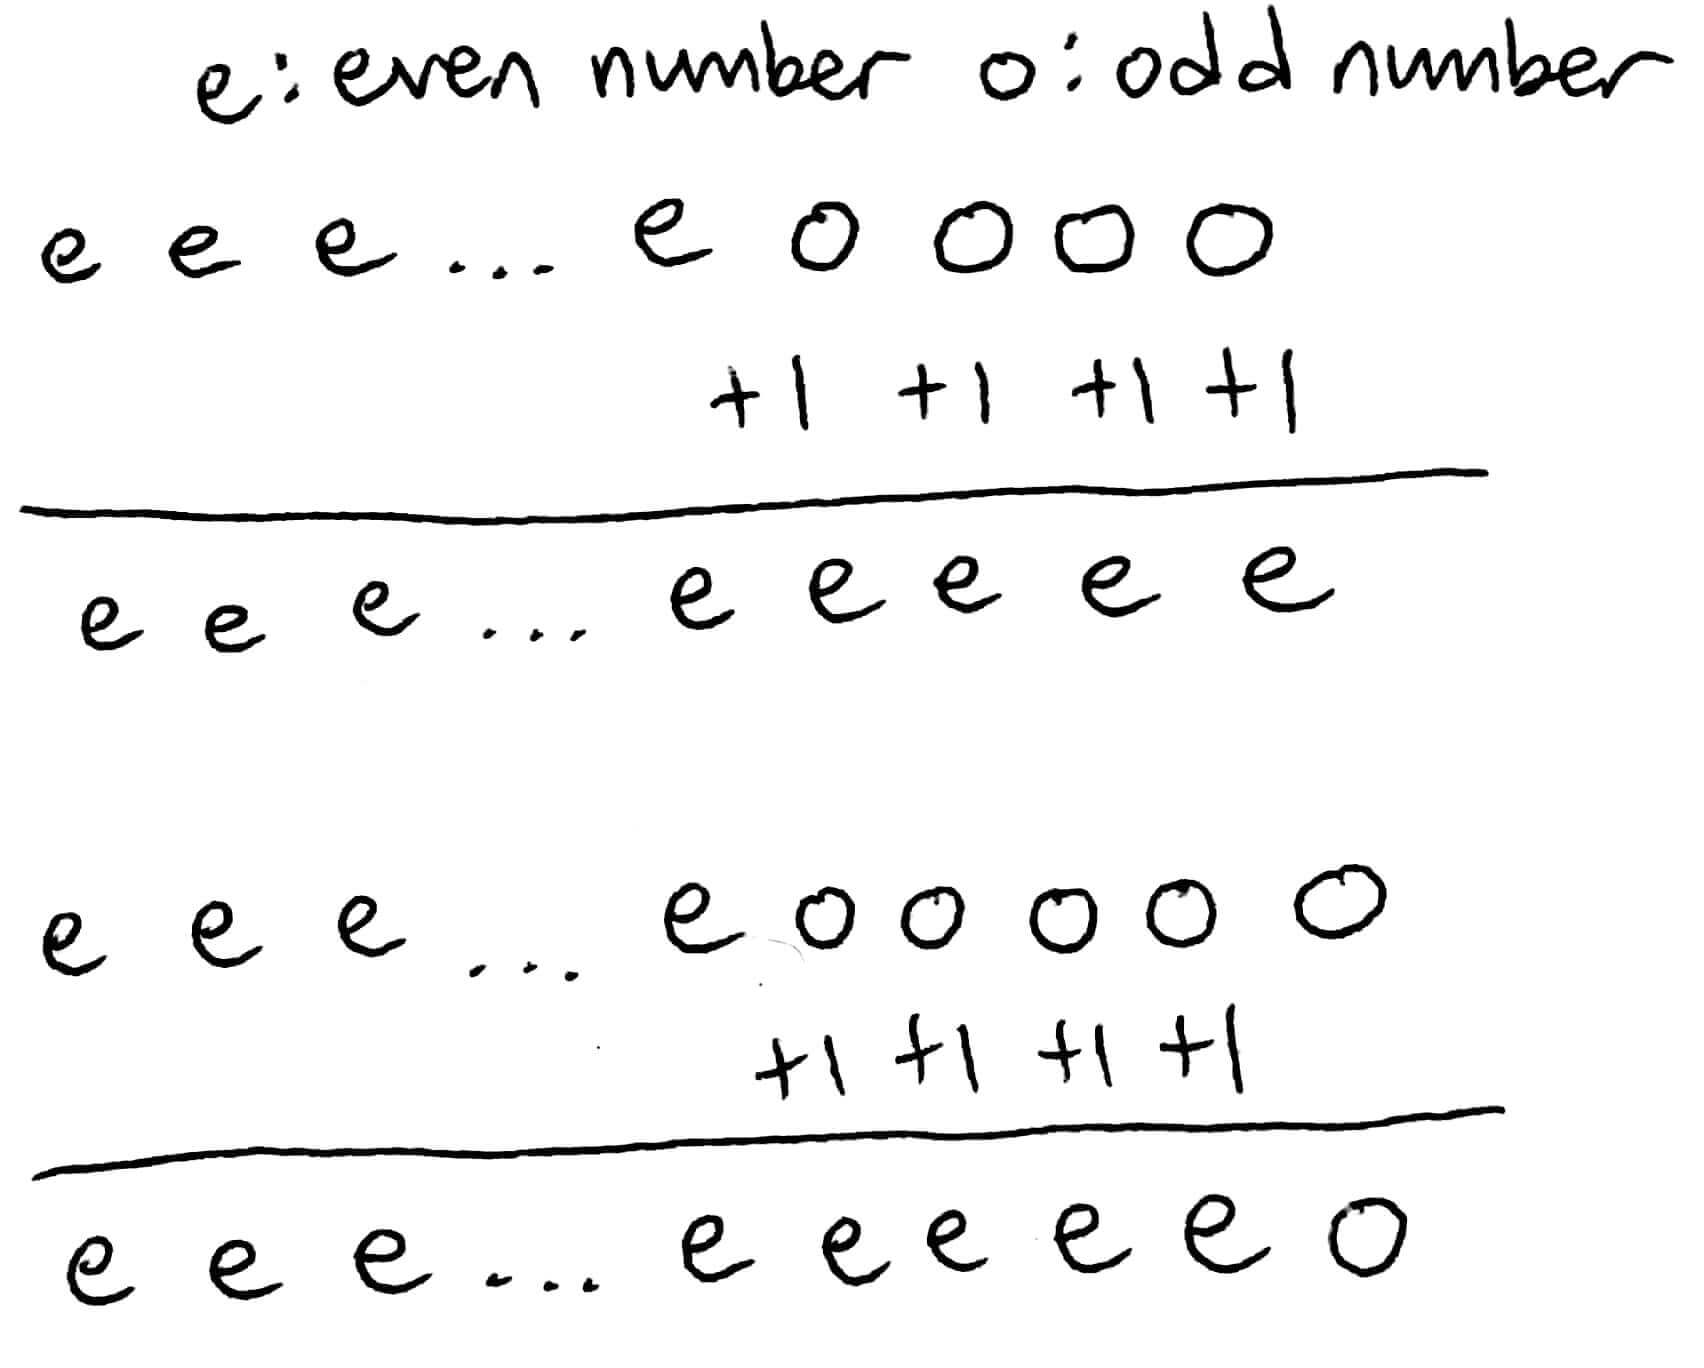 e: even number o: odd number
e e e ... e o o o o
+1 +1 +1 +1
e e e ... e e e e e
e e e ... e o o o o o
+1 +1 +1 +1
e e e ... e e e e e o